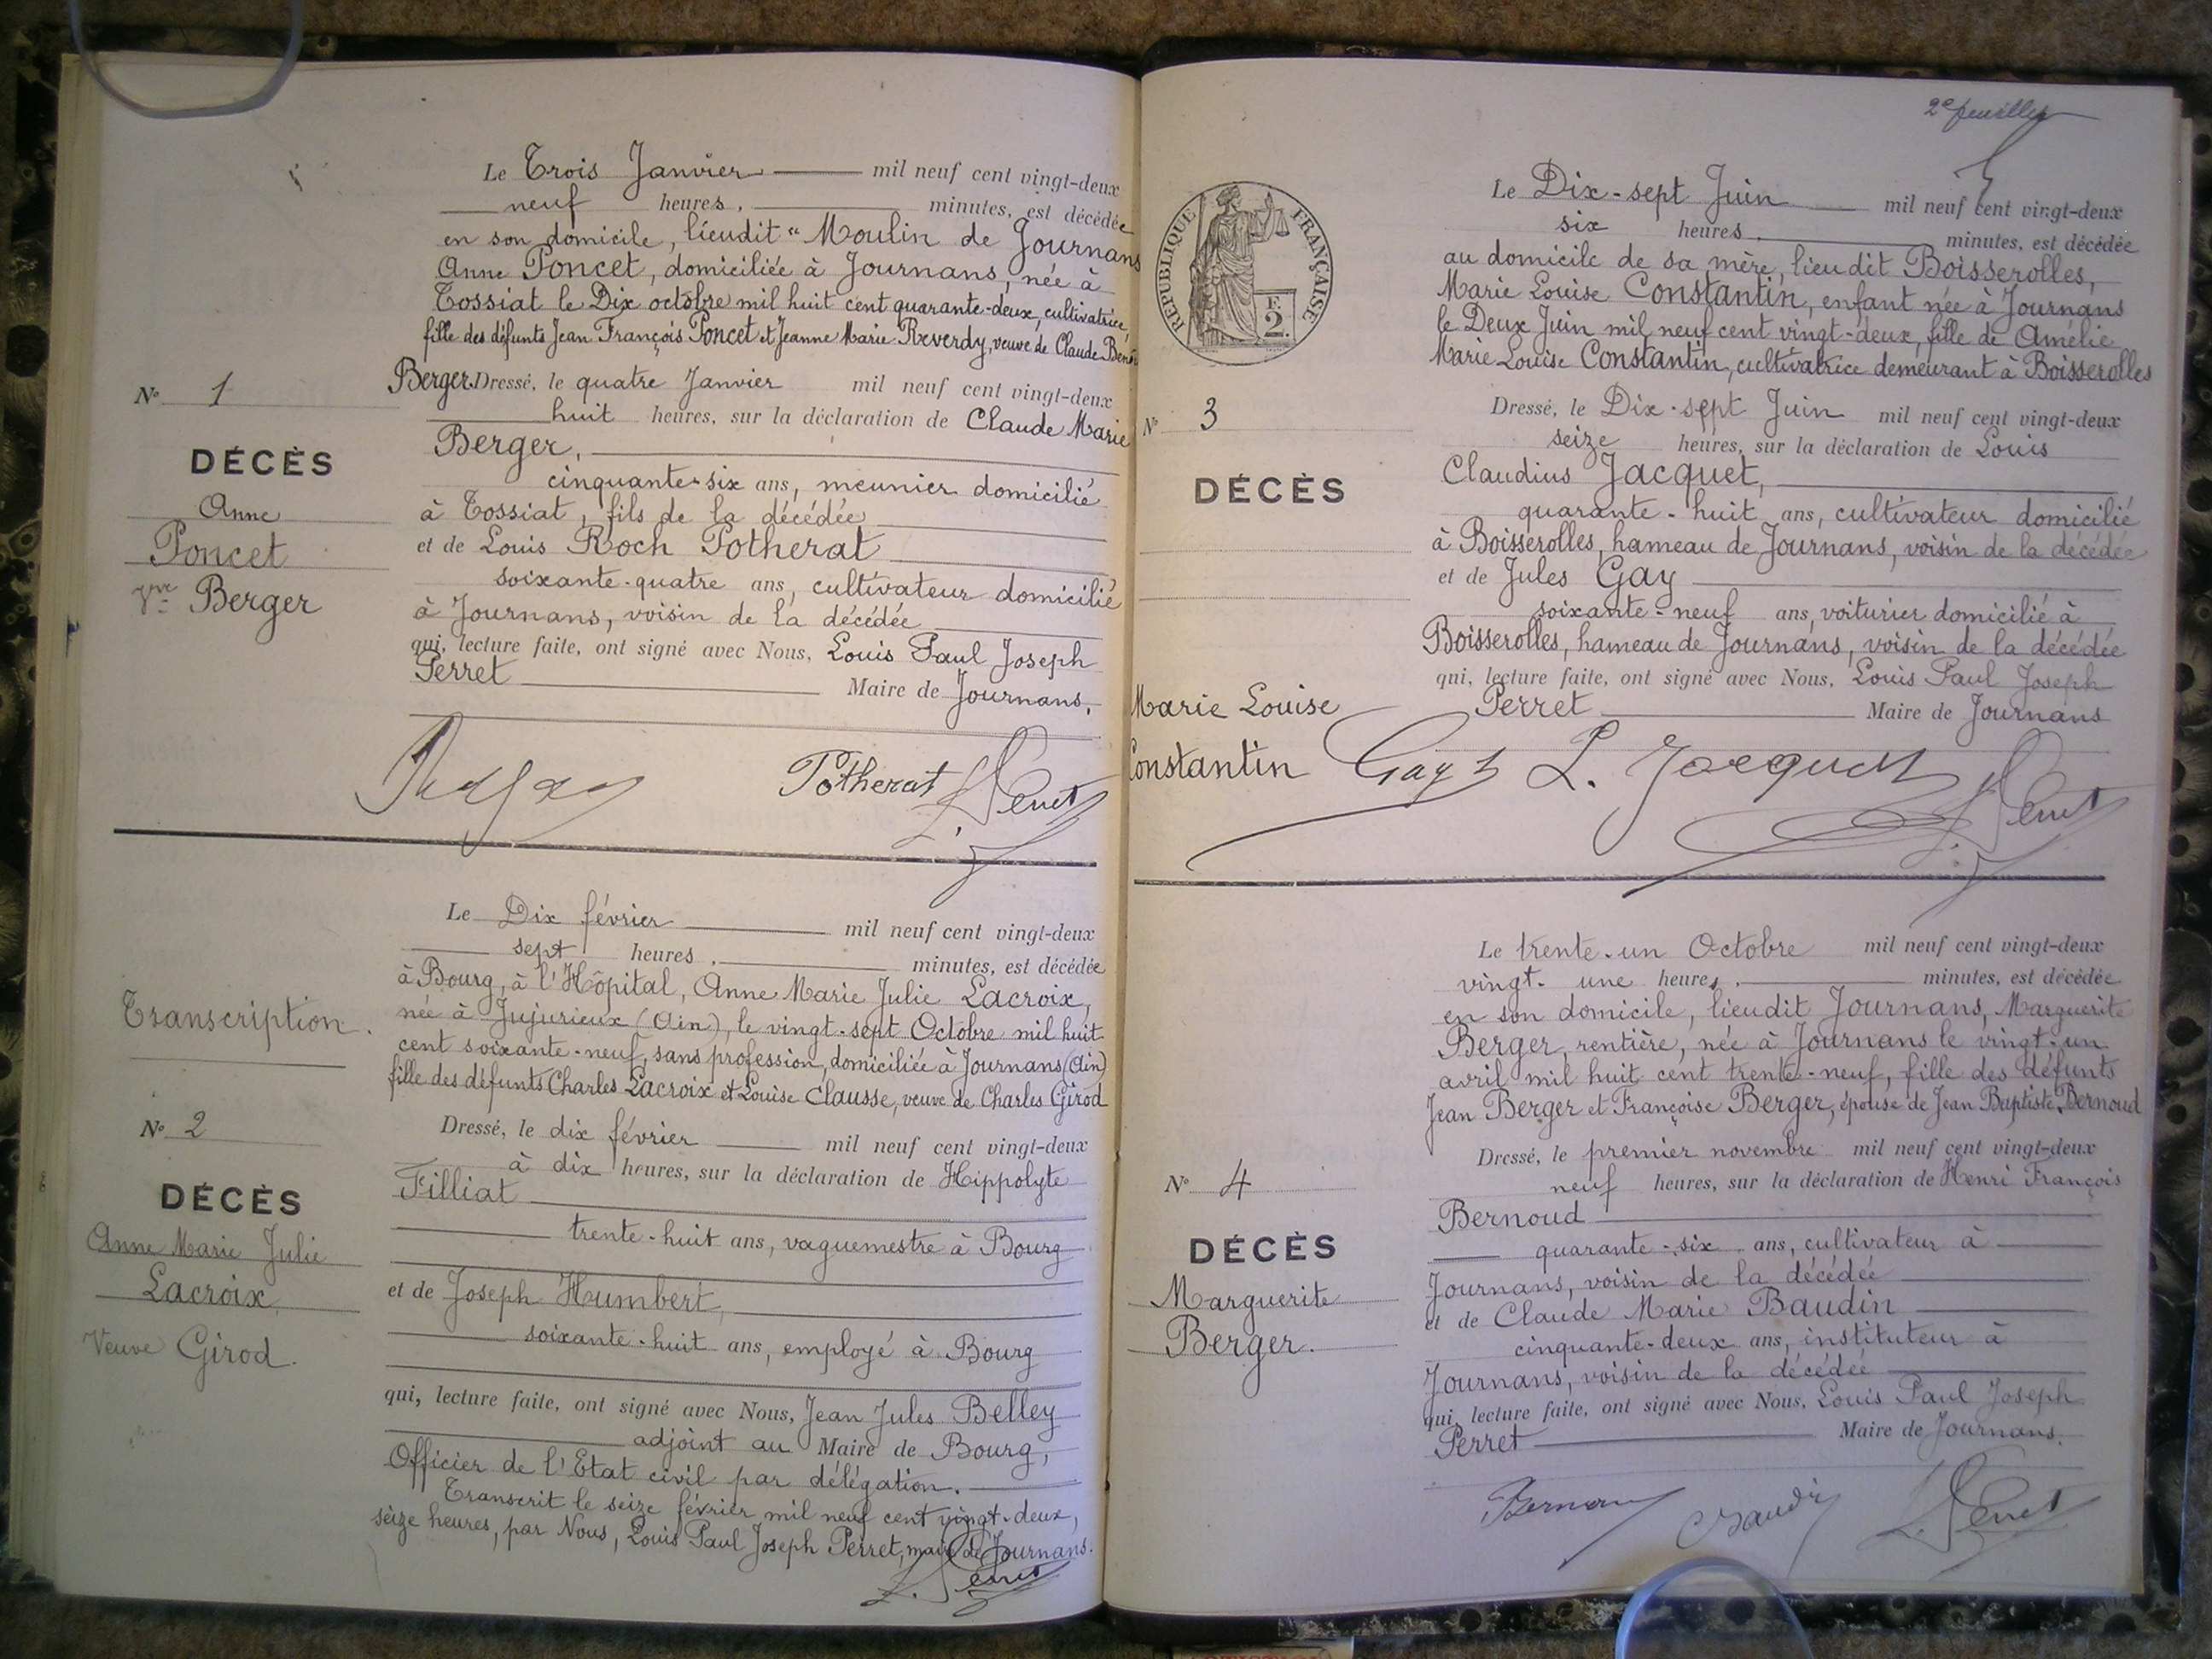 Le Trois Janvier mil neuf cent vingt-deux
neuf heures, minutes, est décédée
en son domicile, lieudit "Moulin de Journans
Anne Poncet, domiciliée à Journans, née à
Tossiat le Dix octobre mil huit cent quarante-deux, cultivatrice,
fille des défunts Jean François Poncet et Jeanne Marie Reverdy, veuve de Claude
Berger. Dressé, le quatre Janvier mil neuf cent vingt-deux
huit heures, sur la déclaration de Claude Marie
Berger,
cinquante-six ans, meunier domicilié
à Tossiat, fils de la décédée
et de Louis Roch Potherat
soixante-quatre ans, cultivateur domicilié
à Journans, voisin de la décédée
qui, lecture faite, ont signé avec Nous, Louis Paul Joseph
Perret Maire de Journans.
N° 1
DÉCÈS
Anne
Poncet
Vve Berger
Potherat L. Perret
Le Dix février mil neuf cent vingt-deux
sept heures, minutes, est décédée
à Bourg, à l'Hôpital, Anne Marie Julie Lacroix,
née à Jujurieux (Ain), le vingt-sept Octobre mil huit
cent soixante-neuf, sans profession, domiciliée à Journans (Ain)
fille des défunts Charles Lacroix et Louise Clausse, veuve de Charles Girod
Dressé, le dix février mil neuf cent vingt-deux
à dix heures, sur la déclaration de Hippolyte
Filliat
trente-huit ans, vaguemestre à Bourg
et de Joseph Humbert,
soixante-huit ans, employé à Bourg
qui, lecture faite, ont signé avec Nous, Jean Jules Belley
adjoint au Maire de Bourg,
Officier de l'Etat civil par délégation.
Transcrit le seize février mil neuf cent vingt-deux,
seize heures, par Nous, Louis Paul Joseph Perret, maire de Journans.
L. Perret
Transcription.
N° 2
DÉCÈS
Anne Marie Julie
Lacroix,
Veuve Girod.
2e feuillet
RÉPUBLIQUE FRANÇAISE
F.
2.
Le Dix-sept Juin mil neuf cent vingt-deux
six heures, minutes, est décédée
au domicile de sa mère, lieudit Boisserolles,
Marie Louise Constantin, enfant née à Journans
le Deux Juin mil neuf cent vingt-deux, fille de Amélie
Marie Louise Constantin, cultivatrice demeurant à Boisserolles
Dressé, le Dix-sept Juin mil neuf cent vingt-deux
seize heures, sur la déclaration de Louis
Claudius Jacquet,
quarante-huit ans, cultivateur domicilié
à Boisserolles, hameau de Journans, voisin de la décédée
et de Jules Gay
soixante-neuf ans, voiturier domicilié à
Boisserolles, hameau de Journans, voisin de la décédée
qui, lecture faite, ont signé avec Nous, Louis Paul Joseph
Perret Maire de Journans
N° 3
DÉCÈS
Marie Louise
Constantin
Gay L. Jacquet L. Perret
Le trente-un Octobre mil neuf cent vingt-deux
vingt-une heures, minutes, est décédée
en son domicile, lieudit Journans, Marguerite
Berger, rentière, née à Journans le vingt-un
avril mil huit cent trente-neuf, fille des défunts
Jean Berger et Françoise Berger, épouse de Jean Baptiste Bernoud
Dressé, le premier novembre mil neuf cent vingt-deux
neuf heures, sur la déclaration de Henri François
Bernoud
quarante-six ans, cultivateur à
Journans, voisin de la décédée
et de Claude Marie Baudin
cinquante-deux ans, instituteur à
Journans, voisin de la décédée
qui, lecture faite, ont signé avec Nous, Louis Paul Joseph
Perret Maire de Journans.
N° 4
DÉCÈS
Marguerite
Berger.
Bernoud Baudin L. Perret